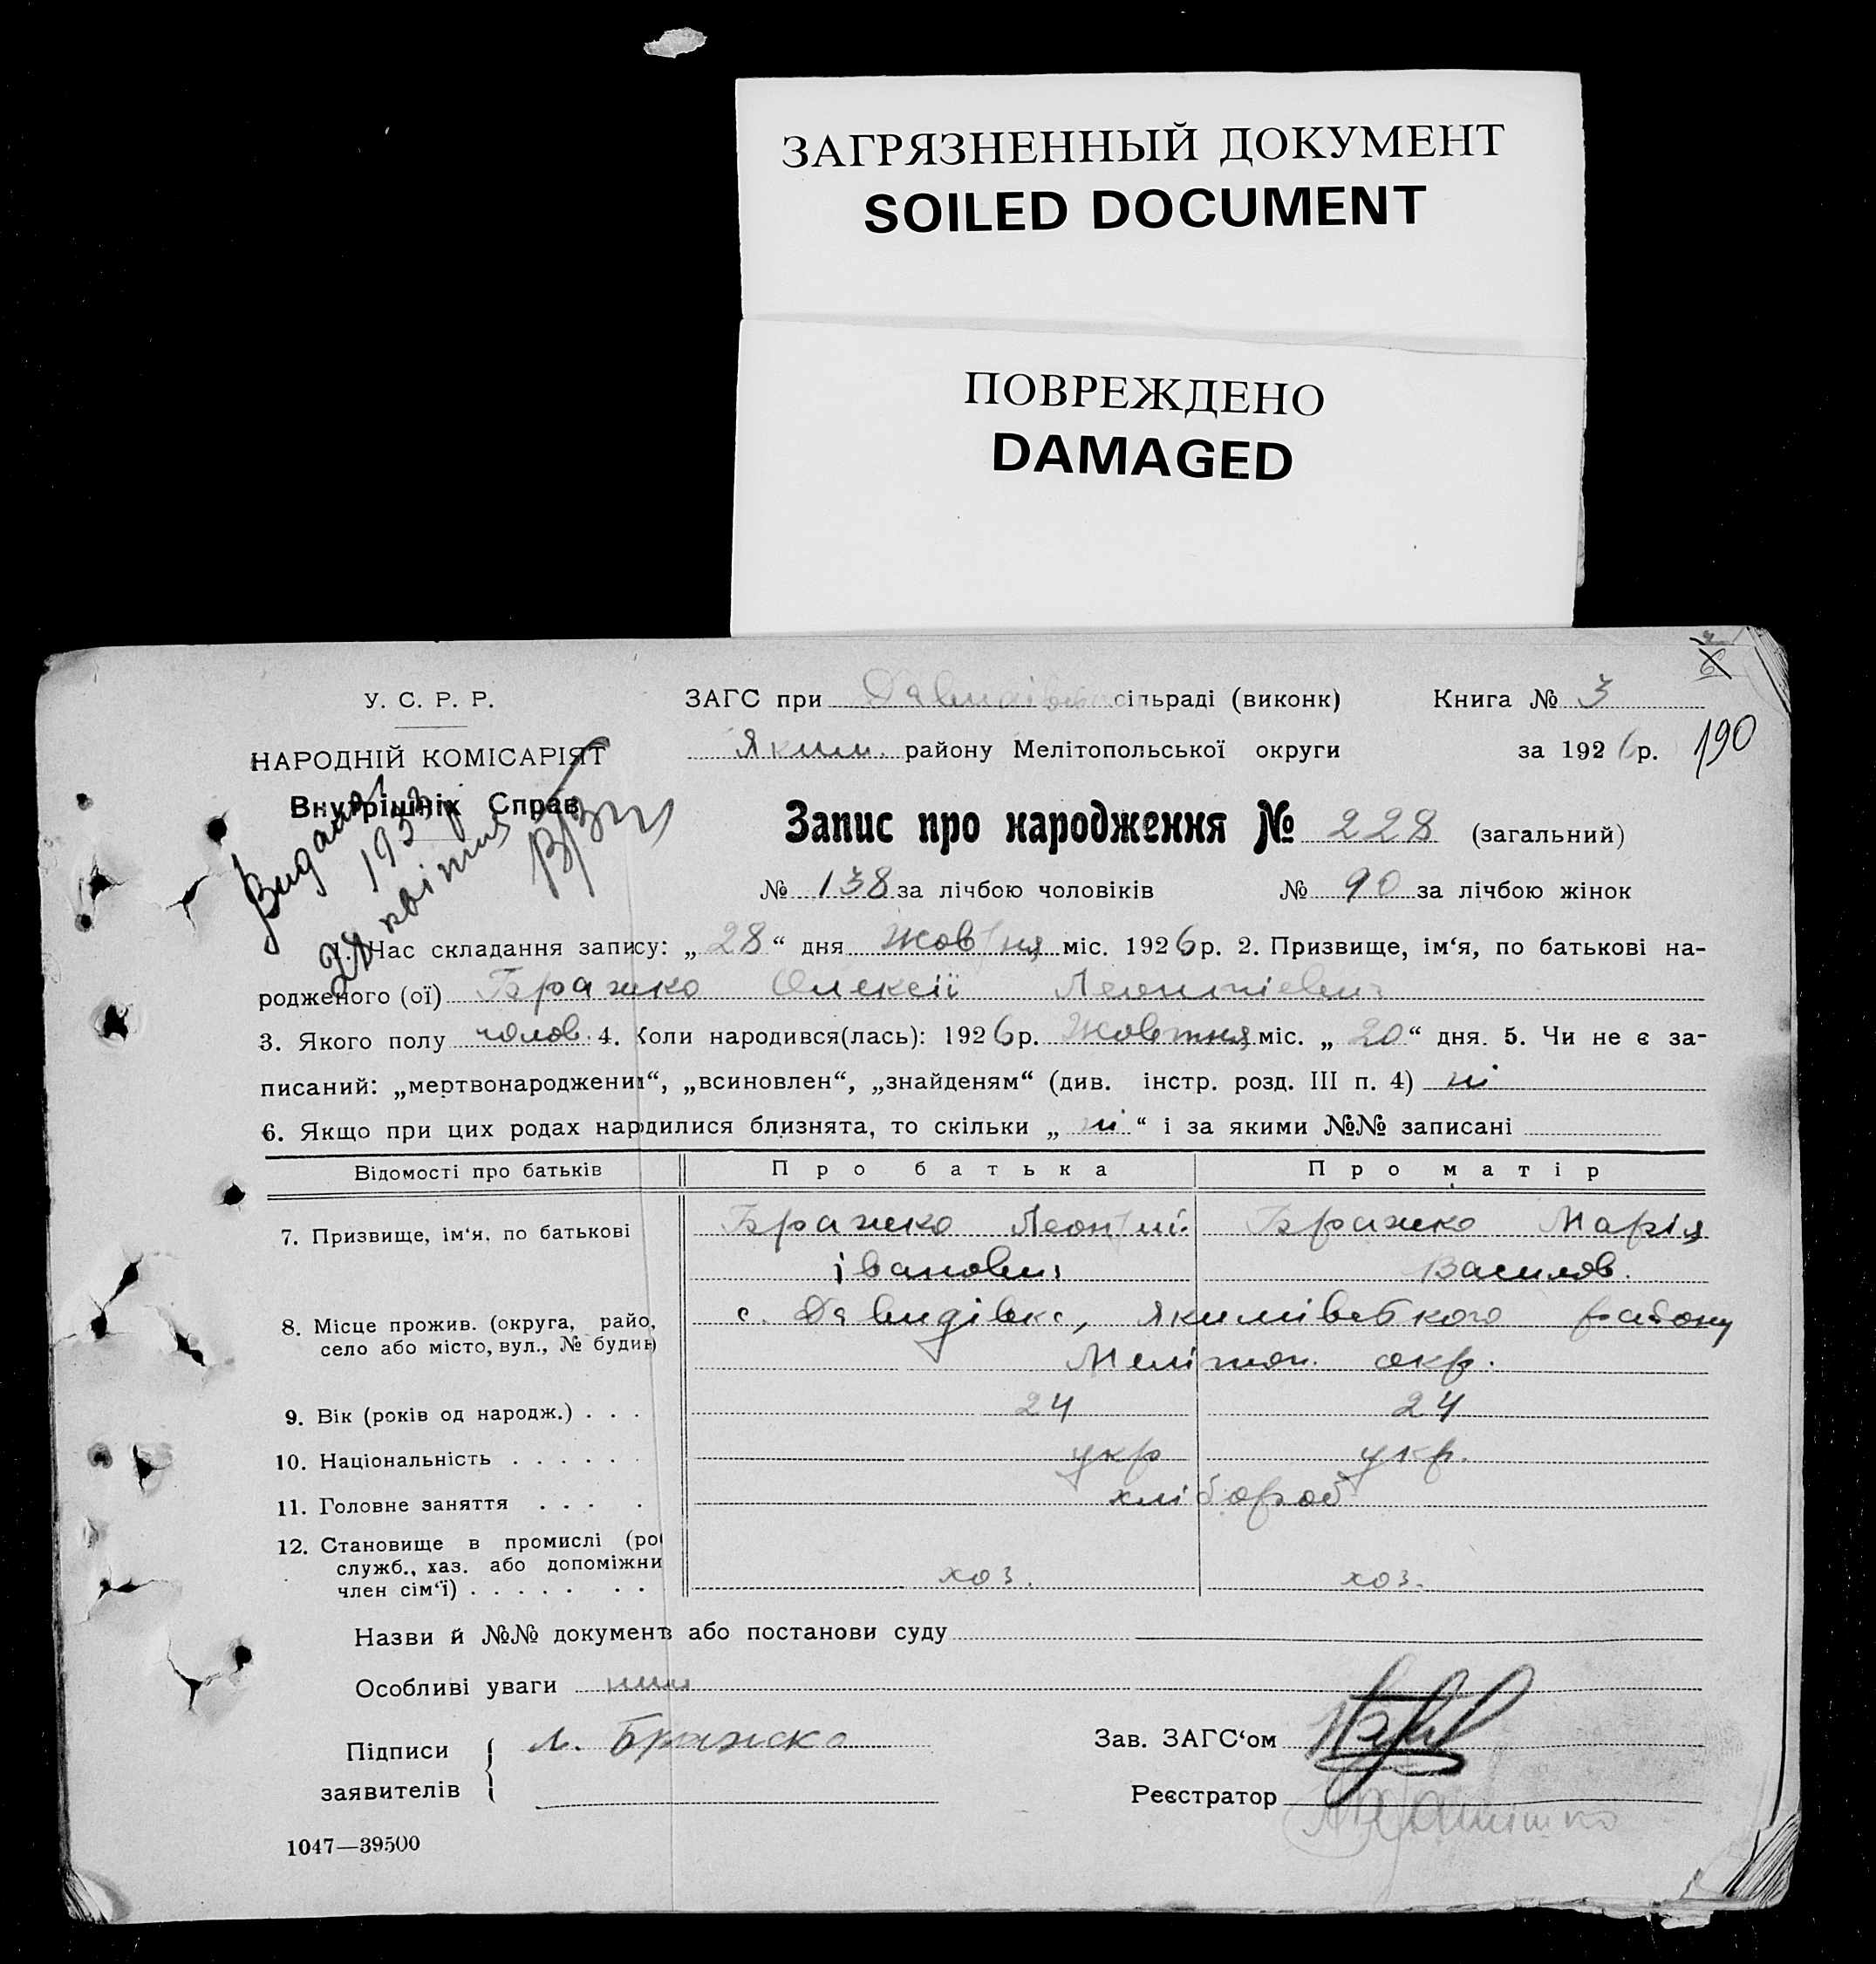 ЗАГРЯЗНЕННЫЙ ДОКУМЕНТ
SOILED DOCUMENT
ПОВРЕЖДЕНО
DAMAGED
У. С. Р. Р.
ЗАГС при сільраді (виконк)
Книга № 3
НАРОДНІЙ КОМІСАРІЯТ
Яким. району Мелітопольської округи
за 1926 р.
190
Внутрішніх Справ
Запис про народження № 228 (загальний)
№ 138 за лічбою чоловіків № 90 за лічбою жінок
1. Час складання запису: „ 28 “ дня Жовтня міс. 1926 р. 2. Призвище, ім‘я, по батькові на-
родженого (ої) Бражко Олексій Леонтієвич
3. Якого полу чолов. 4. Коли народився(лась): 1926 р. Жовтня міс. „ 20 “ дня. 5. Чи не є за-
писаний: „мертвонароджений“, „всиновлен“, „знайденям“ (див. інстр. розд. III п. 4) ні
6. Якщо при цих родах народилися близнята, то скільки „ ні “ і за якими №№ записані
Відомості про батьків Про батька Про матір
7. Призвище, ім‘я, по батькові Бражко Леонтій Бражко Марія
іванович Василов.
8. Місце прожив. (округа, райо, с. Давидівка, Якимівського району
село або місто, вул., № будин) Мелітоп. окр.
9. Вік (років од народж.) . . . 24 24
10. Національність . . . . . . укр укр.
11. Головне заняття . . . . хлібороб
12. Становище в промислі (ро
служб., хаз. або допоміжни
член сім‘ї) . . . . . . . хоз. хоз.
Назви й №№ документів або постанови суду
Особливі уваги
Підписи Л. Бражко Зав. ЗАГС‘ом
заявителів Реєстратор
1047—39500